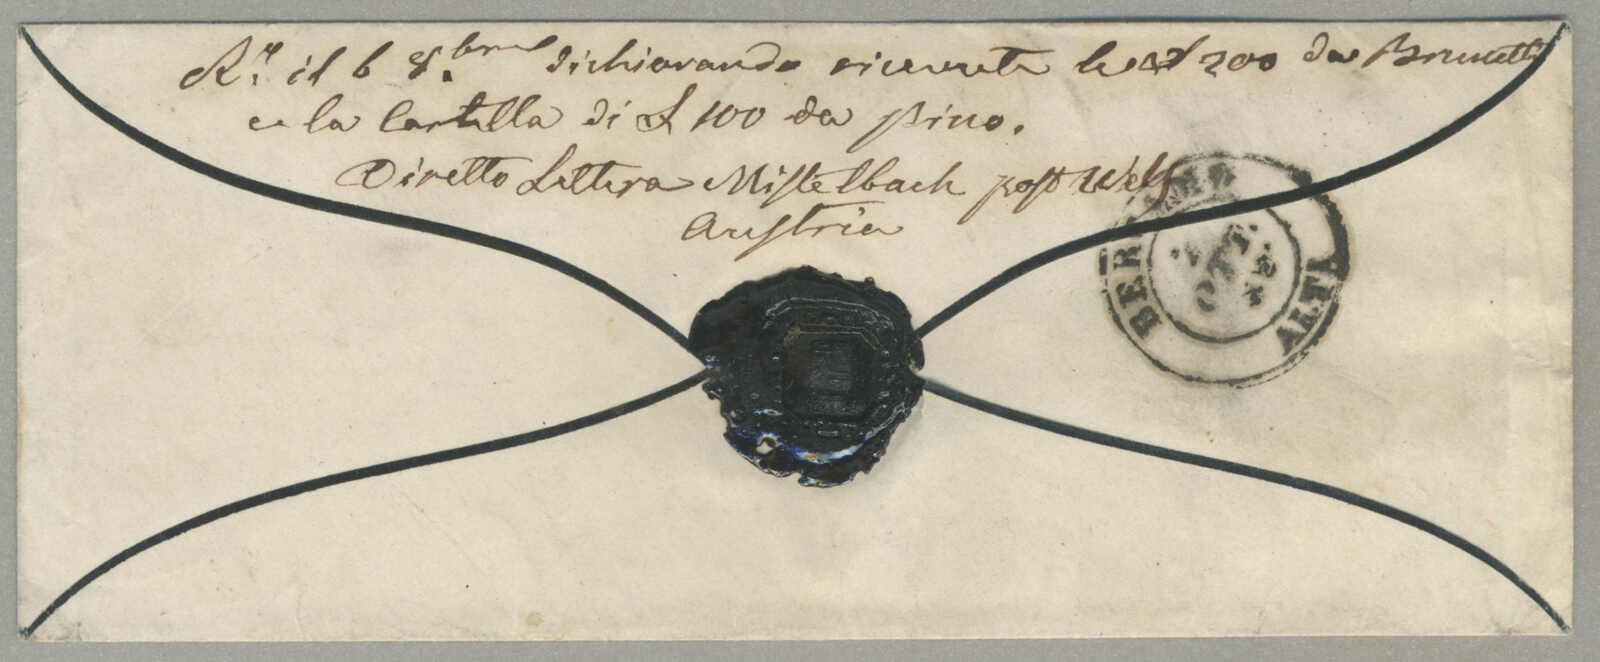 R.ta il 6 8.bre dichiarando ricevute le £ 200 da Brunetti
e la Cartella di £ 100 da Pino.
Diretto Lettera Mistelbach post Wels
Austria
BER
OTT.